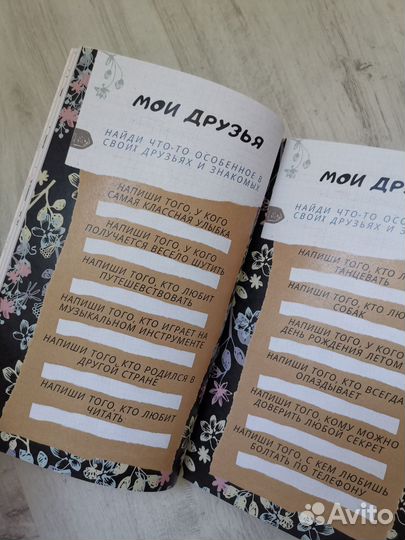 МОИ ДРУЗЬЯ
НАЙДИ ЧТО-ТО ОСОБЕННОЕ В
СВОИХ ДРУЗЬЯХ И ЗНАКОМЫХ
НАПИШИ ТОГО, У КОГО
САМАЯ КЛАССНАЯ УЛЫБКА
НАПИШИ ТОГО, У КОГО
ПОЛУЧАЕТСЯ ВЕСЕЛО ШУТИТЬ
НАПИШИ ТОГО, КТО ЛЮБИТ
ПУТЕШЕСТВОВАТЬ
НАПИШИ ТОГО, КТО ИГРАЕТ НА
МУЗЫКАЛЬНОМ ИНСТРУМЕНТЕ
НАПИШИ ТОГО, КТО РОДИЛСЯ В
ДРУГОЙ СТРАНЕ
НАПИШИ ТОГО, КТО ЛЮБИТ
ЧИТАТЬ
МОИ ДРУ
НАЙДИ ЧТО-ТО ОСО
СВОИХ ДРУЗЬЯХ И ЗН
НАПИШИ ТОГО, КТО Л
ТАНЦЕВАТЬ
НАПИШИ ТОГО, КТО ЛЮ
СОБАК
НАПИШИ ТОГО, У КОГО
ДЕНЬ РОЖДЕНИЯ ЛЕТОМ
НАПИШИ ТОГО, КТО ВСЕГДА
ОПАЗДЫВАЕТ
НАПИШИ ТОГО, КОМУ МОЖНО
ДОВЕРИТЬ ЛЮБОЙ СЕКРЕТ
НАПИШИ ТОГО, С КЕМ ЛЮБИШЬ
БОЛТАТЬ ПО ТЕЛЕФОНУ
Avito